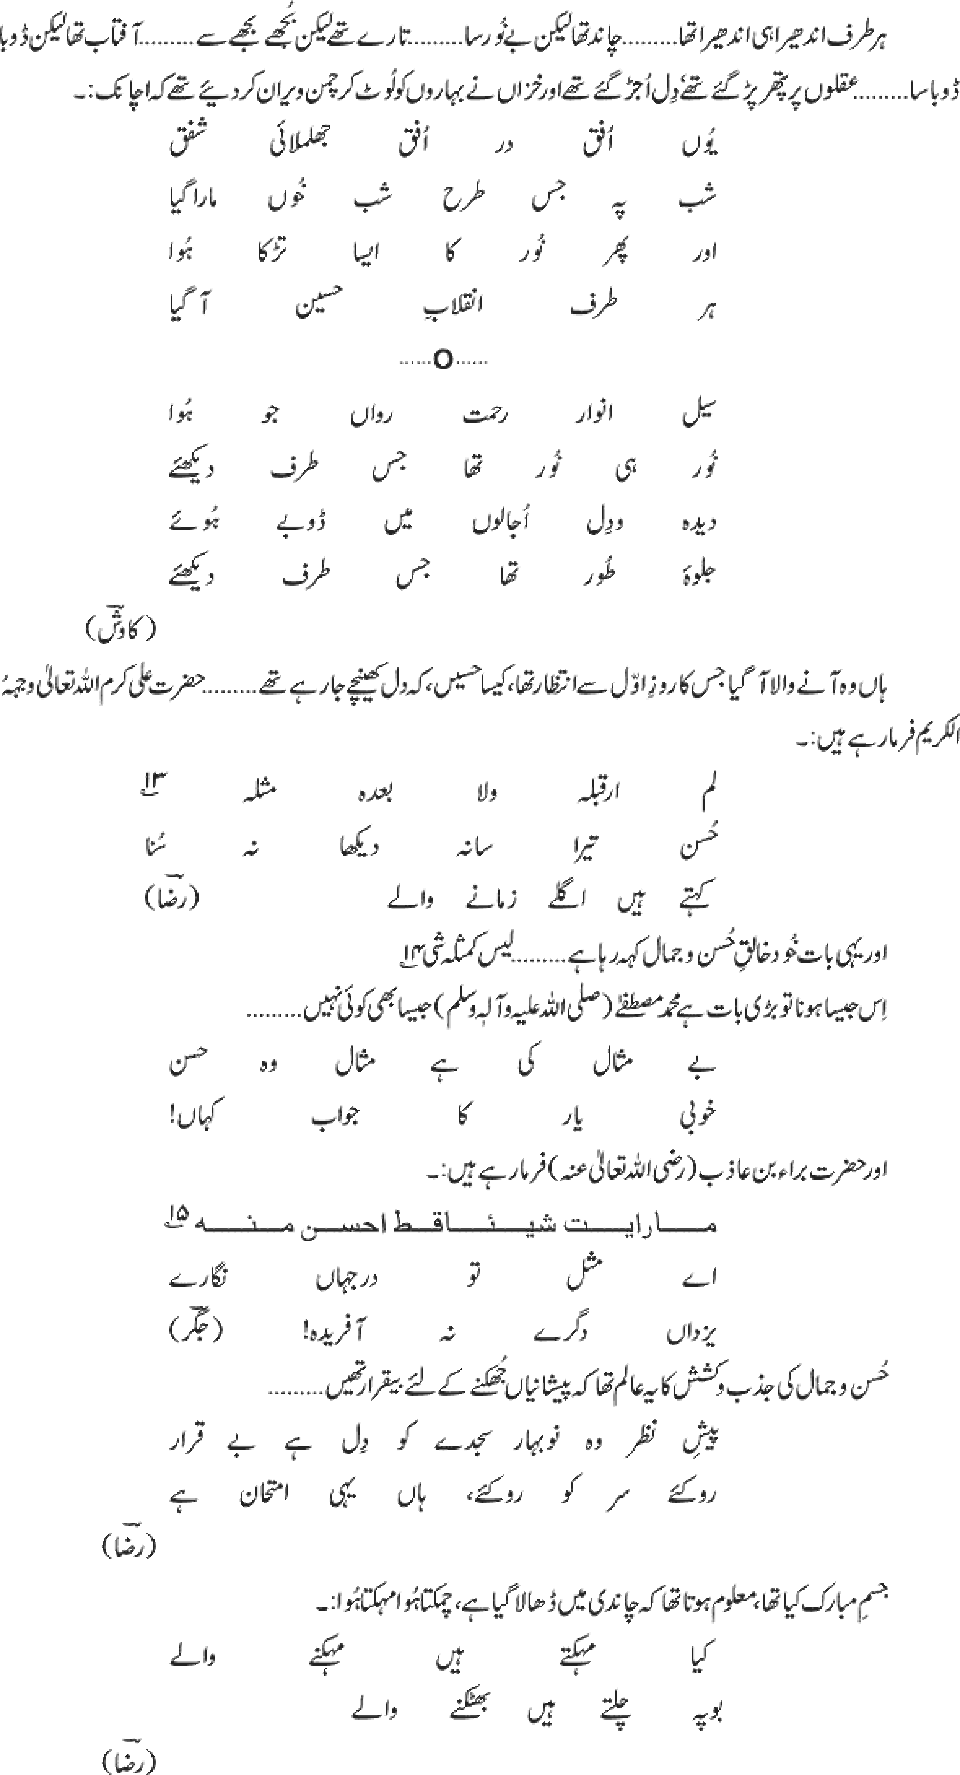 ہر طرف اندھیرا ہی اندھیرا تھا.........چاند تھا لیکن بے نُور سا.........تارے تھے لیکن بُجھے بجھے سے.........آفتاب تھا لیکن ڈوبا
ڈوبا سا.........عقلوں پر پتھر پڑ گئے تھے دِل اُجڑ گئے تھے اور خزاں نے بہاروں کو لُوٹ کر چمن ویران کر دیئے تھے کہ اچانک:۔
یُوں اُفق در اُفق جھلملائی شفق
شب پہ جس طرح شب خُوں مارا گیا
اور پھر نُور کا ایسا تڑکا ہُوا
ہر طرف انقلابِ حسین آ گیا
......O......
سیل انوار رحمت رواں جو ہُوا
نُور ہی نُور تھا جس طرف دیکھئے
دیدہ و دِل اُجالوں میں ڈوبے ہُوئے
جلوۂ طُور تھا جس طرف دیکھئے
(کاوشؔ)
ہاں وہ آنے والا آ گیا جس کا روزِ اوّل سے انتظار تھا، کیسا حسیں، کہ دل کھینچے جا رہے تھے.........حضرت علی کرم اللہ تعالیٰ وجہہُ
الکریم فرما رہے ہیں:۔
لم ارقبلہ ولا بعدہ مثلہ ۱۳
حُسن تیرا سانہ دیکھا نہ سُنا
کہتے ہیں اگلے زمانے والے (رضاؔ)
اور یہی بات خُود خالقِ حُسن و جمال کہہ رہا ہے.........لیس کمثلہ شی ۱۴
اِس جیسا ہونا تو بڑی بات ہے محمد مصطفےٰ (صلی اللہ علیہ وآلہٖ وسلم) جیسا بھی کوئی نہیں.........
بے مثال کی ہے مثال وہ حسن
خوبی یار کا جواب کہاں!
اور حضرت براء بن عاذب (رضی اللہ تعالیٰ عنہ) فرما رہے ہیں:۔
مارایت شیئا قط احسن منہ ۱۵
اے مثل تو در جہاں نگارے
یزداں دگرے نہ آفریدہ! (جگرؔ)
حُسن و جمال کی جذب و کشش کا یہ عالم تھا کہ پیشانیاں جُھکنے کے لئے بیقرار تھیں.........
پیشِ نظر وہ نوبہار سجدے کو دِل ہے بے قرار
روکئے سر کو روکئے، ہاں یہی امتحان ہے
(رضاؔ)
جسمِ مبارک کیا تھا، معلوم ہوتا تھا کہ چاندی میں ڈھالا گیا ہے، چمکتا ہُوا مہکتا ہُوا:۔
کیا مہکتے ہیں مہکنے والے
بوپہ چلتے ہیں بھٹکنے والے
(رضاؔ)